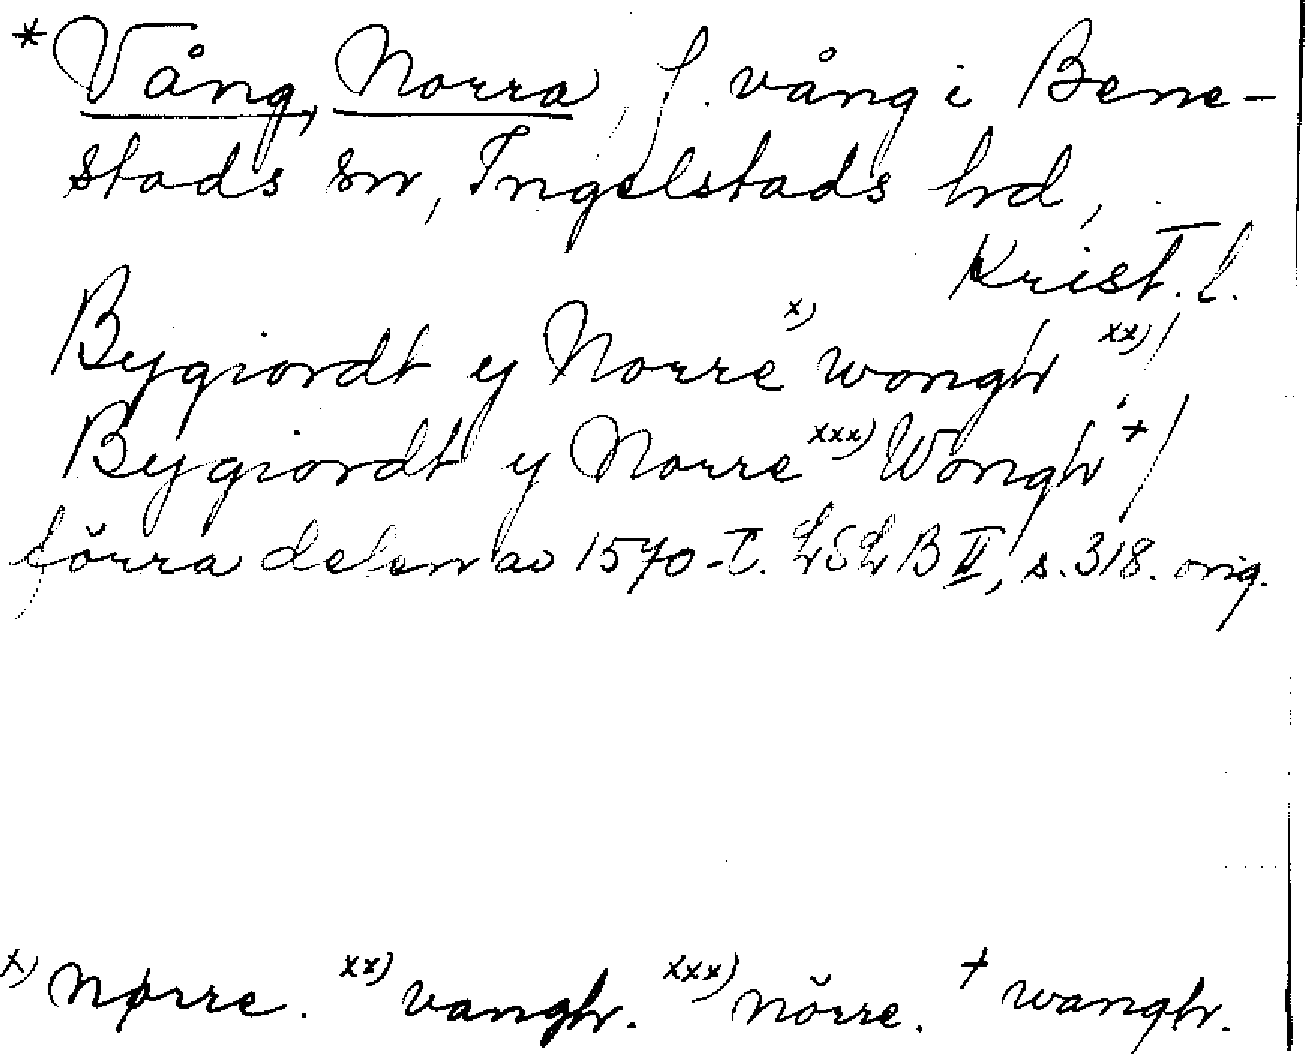 *Vång, Norra, f. vång i Bene-
stads sn, Ingelstads hrd,
Krist. l.
Bygiordt y Norre x) wongh xx)/
Bygiordt y Norre xxx) Wongh +/
förra delen av 1570-t. LSLB II, s. 318. orig.
x) Nørre. xx) vangh. xxx) nörre. + wangh.